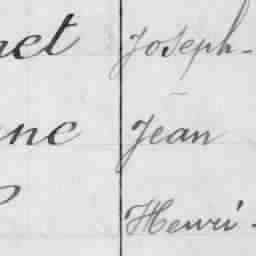 net Joseph-
nc Jean
Henri-